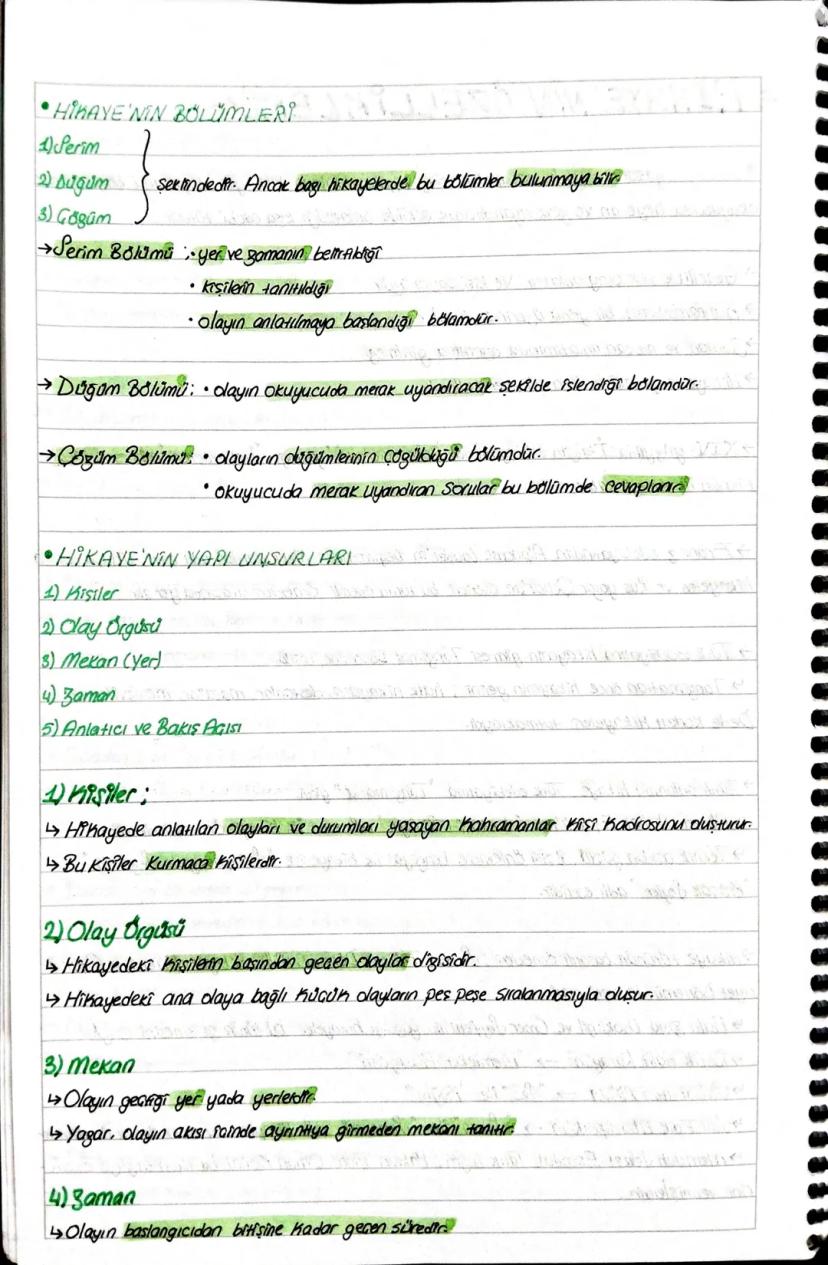 • HİKAYE'NİN BÖLÜMLERİ
1) Serim
2) Düğüm
3) Çözüm
şeklindedir. Ancak bazı hikayelerde bu bölümler bulunmaya bilir.
→ Serim Bölümü : • yer ve zamanın belirtildiği
• kişilerin tanıtıldığı
• olayın anlatılmaya başlandığı bölümdür.
→ Düğüm Bölümü : • olayın okuyucuda merak uyandıracak şekilde işlendiği bölümdür.
→ Çözüm Bölümü : • olayların düğümlerinin çözüldüğü bölümdür.
• okuyucuda merak uyandıran sorular bu bölümde cevaplanır.
• HİKAYE'NİN YAPI UNSURLARI
1) Kişiler
2) Olay Örgüsü
3) Mekan (Yer)
4) Zaman
5) Anlatıcı ve Bakış Açısı
1) Kişiler ;
↳ Hikayede anlatılan olayları ve durumları yaşayan kahramanlar kişi kadrosunu oluşturur.
↳ Bu kişiler kurmaca kişilerdir.
2) Olay Örgüsü
↳ Hikayedeki kişilerin başından geçen olaylar dizisidir.
↳ Hikayedeki ana olaya bağlı küçük olayların peş peşe sıralanmasıyla oluşur.
3) Mekan
↳ Olayın geçtiği yer yada yerlerdir.
↳ Yazar, olayın akışı içinde ayrıntıya girmeden mekanı tanıtır.
4) Zaman
↳ Olayın başlangıcıdan bitişine kadar geçen süredir.